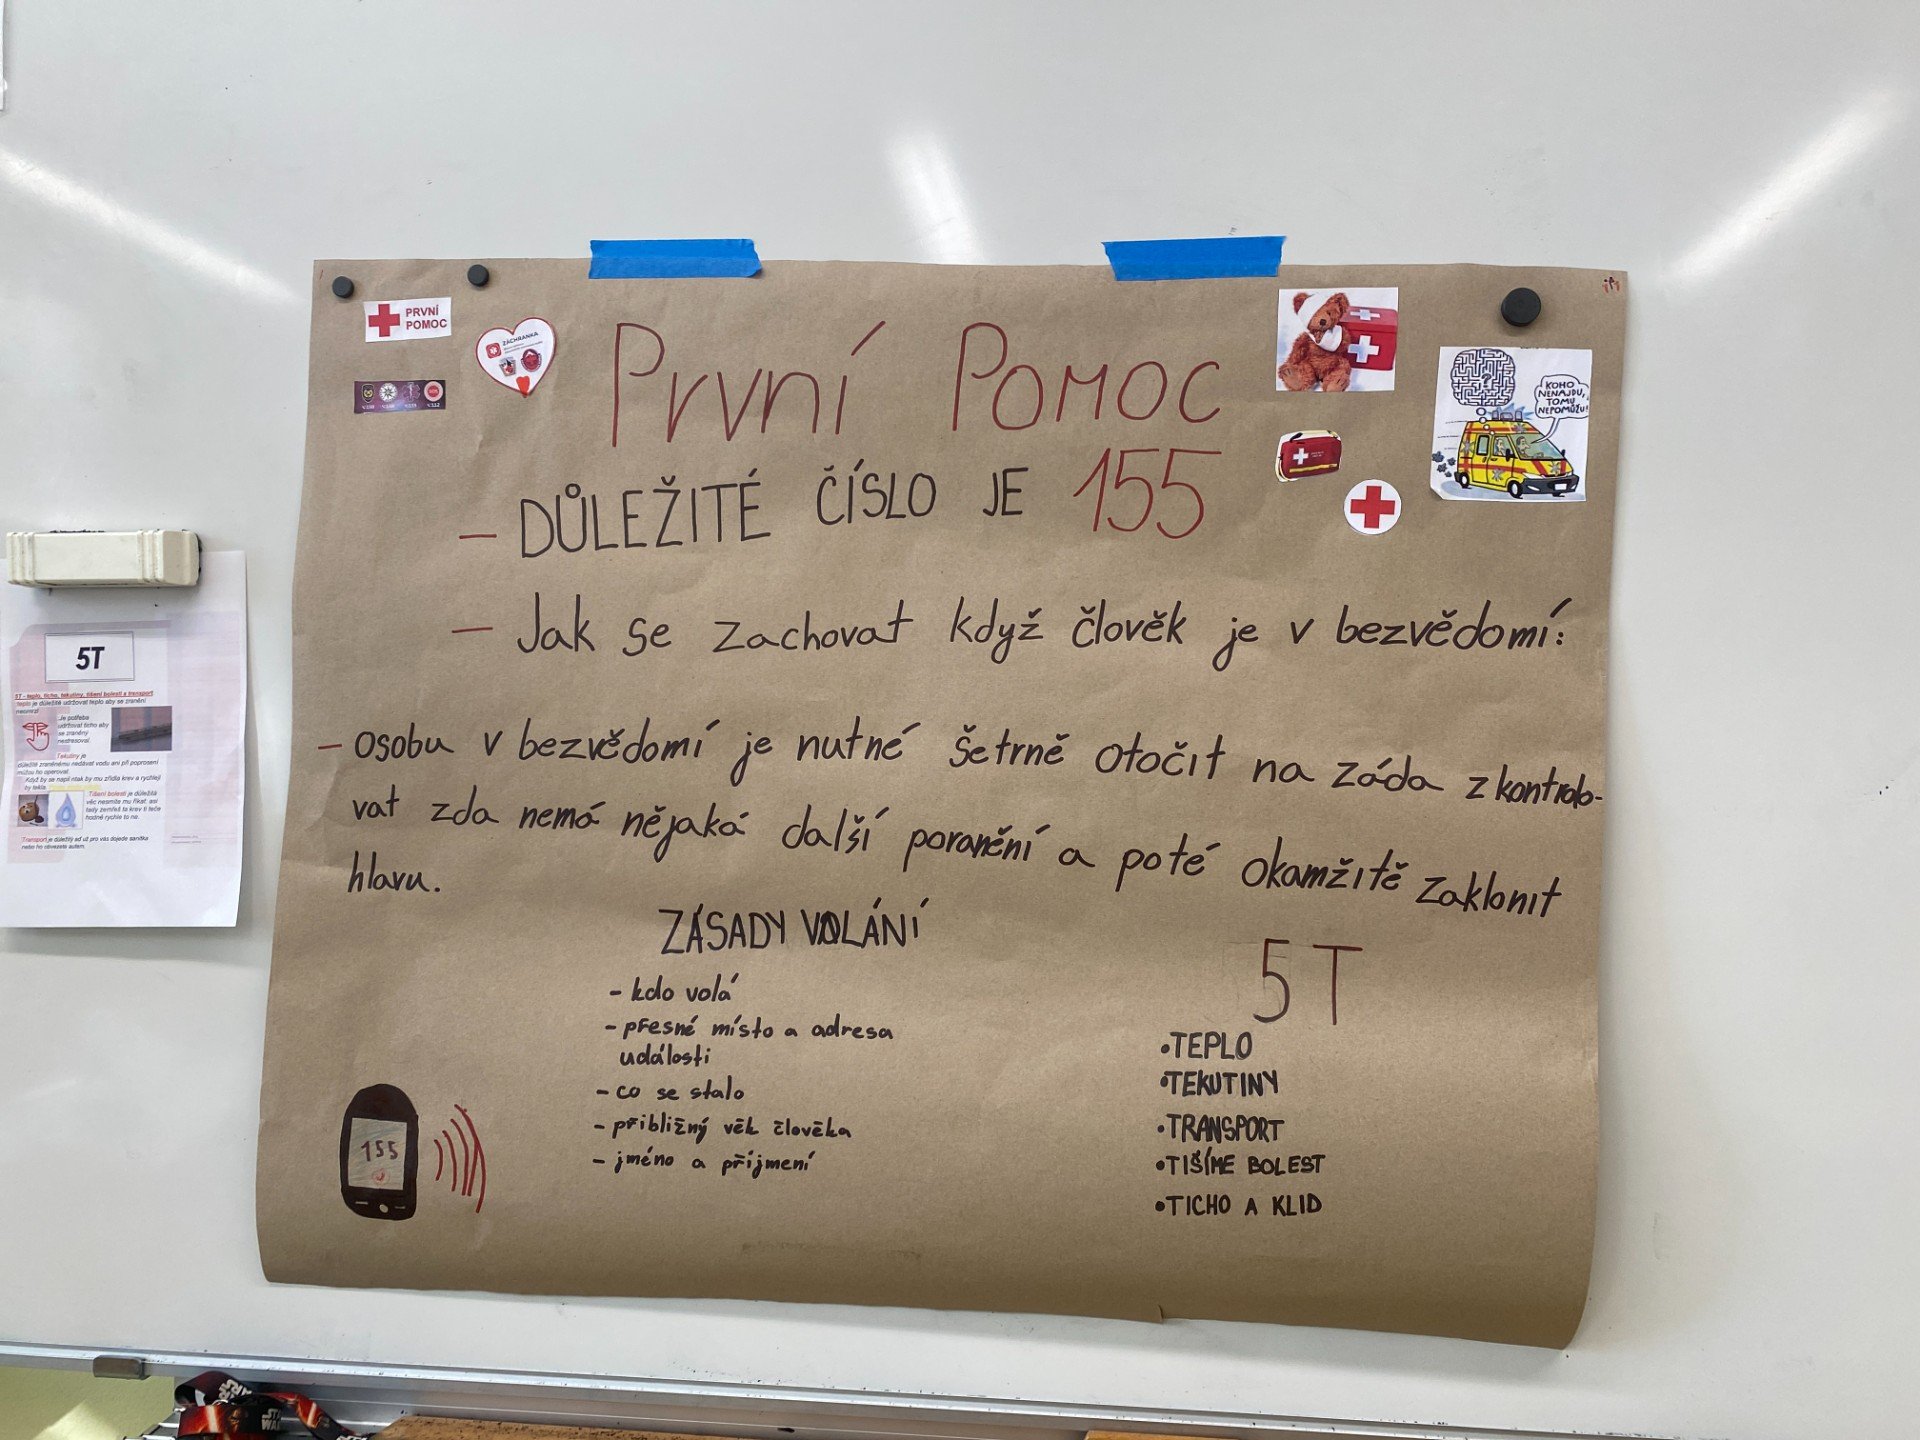 PRVNÍ
POMOC
ZÁCHRANKA
První Pomoc
KOHO
NENAJDU,
TOMU
NEPOMŮŽU!
?
- DŮLEŽITÉ ČÍSLO JE 155
- Jak se zachovat když člověk je v bezvědomí:
- osobu v bezvědomí je nutné šetrně otočit na záda zkontrolo-
vat zda nemá nějaká další poranění a poté okamžitě zaklonit
hlavu.
ZÁSADY VOLÁNÍ
- kdo volá
- přesné místo a adresa
události
- co se stalo
- přibližný věk člověka
- jméno a příjmení
155
5T
•TEPLO
•TEKUTINY
•TRANSPORT
•TIŠÍME BOLEST
•TICHO A KLID
5T
5T - teplo, ticho, tekutiny, tišení bolesti a transport
teplo je důležité udržovat teplo aby se zranění
neomrzl
Je potřeba
udržovat ticho aby
se zraněný
nestresoval.
Tekutiny je
důležité zraněnému nedávat vodu ani při poprosení
můžou ho operovat.
Když by se napil ntak by mu zřidla krev a rychleji
by tekla.
Tišení bolesti je důležitá
věc nesmíte mu říkat: asi
tady zemřeš ta krev ti teče
hodně rychle to na.
Transport je důležitý ad už pro vás dojede sanitka
nebo ho obvezete autem.